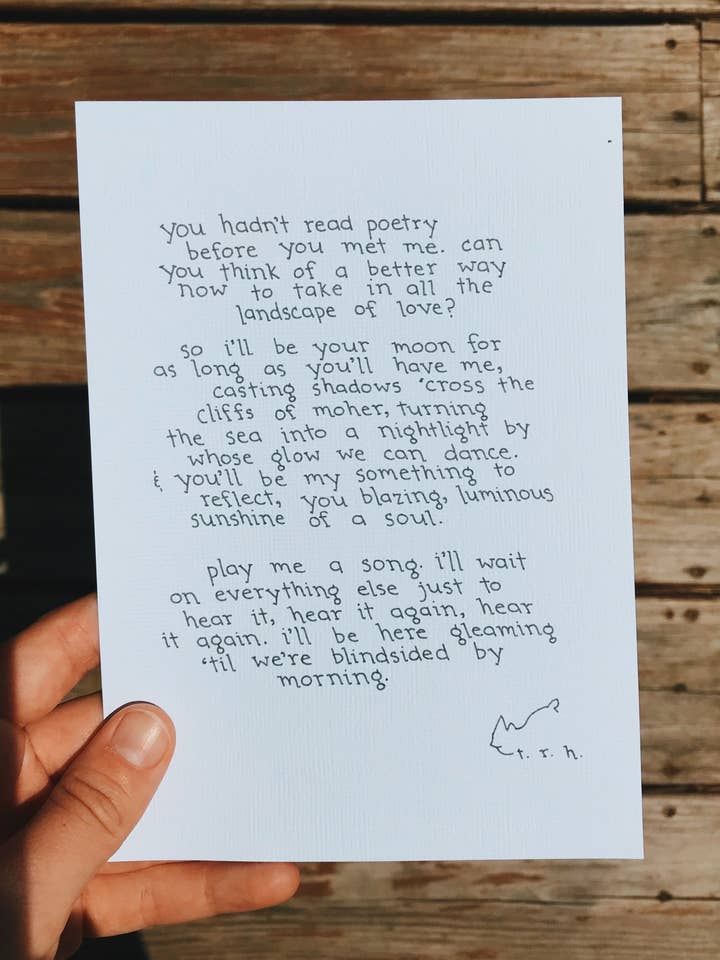 you hadn't read poetry
before you met me. can
you think of a better way
now to take in all the
landscape of love?
so i'll be your moon for
as long as you'll have me,
casting shadows 'cross the
cliffs of moher, turning
the sea into a nightlight by
whose glow we can dance.
& you'll be my something to
reflect, you blazing, luminous
sunshine of a soul.
play me a song. i'll wait
on everything else just to
hear it, hear it again, hear
it again. i'll be here gleaming
'til we're blindsided by
morning.
t. r. h.